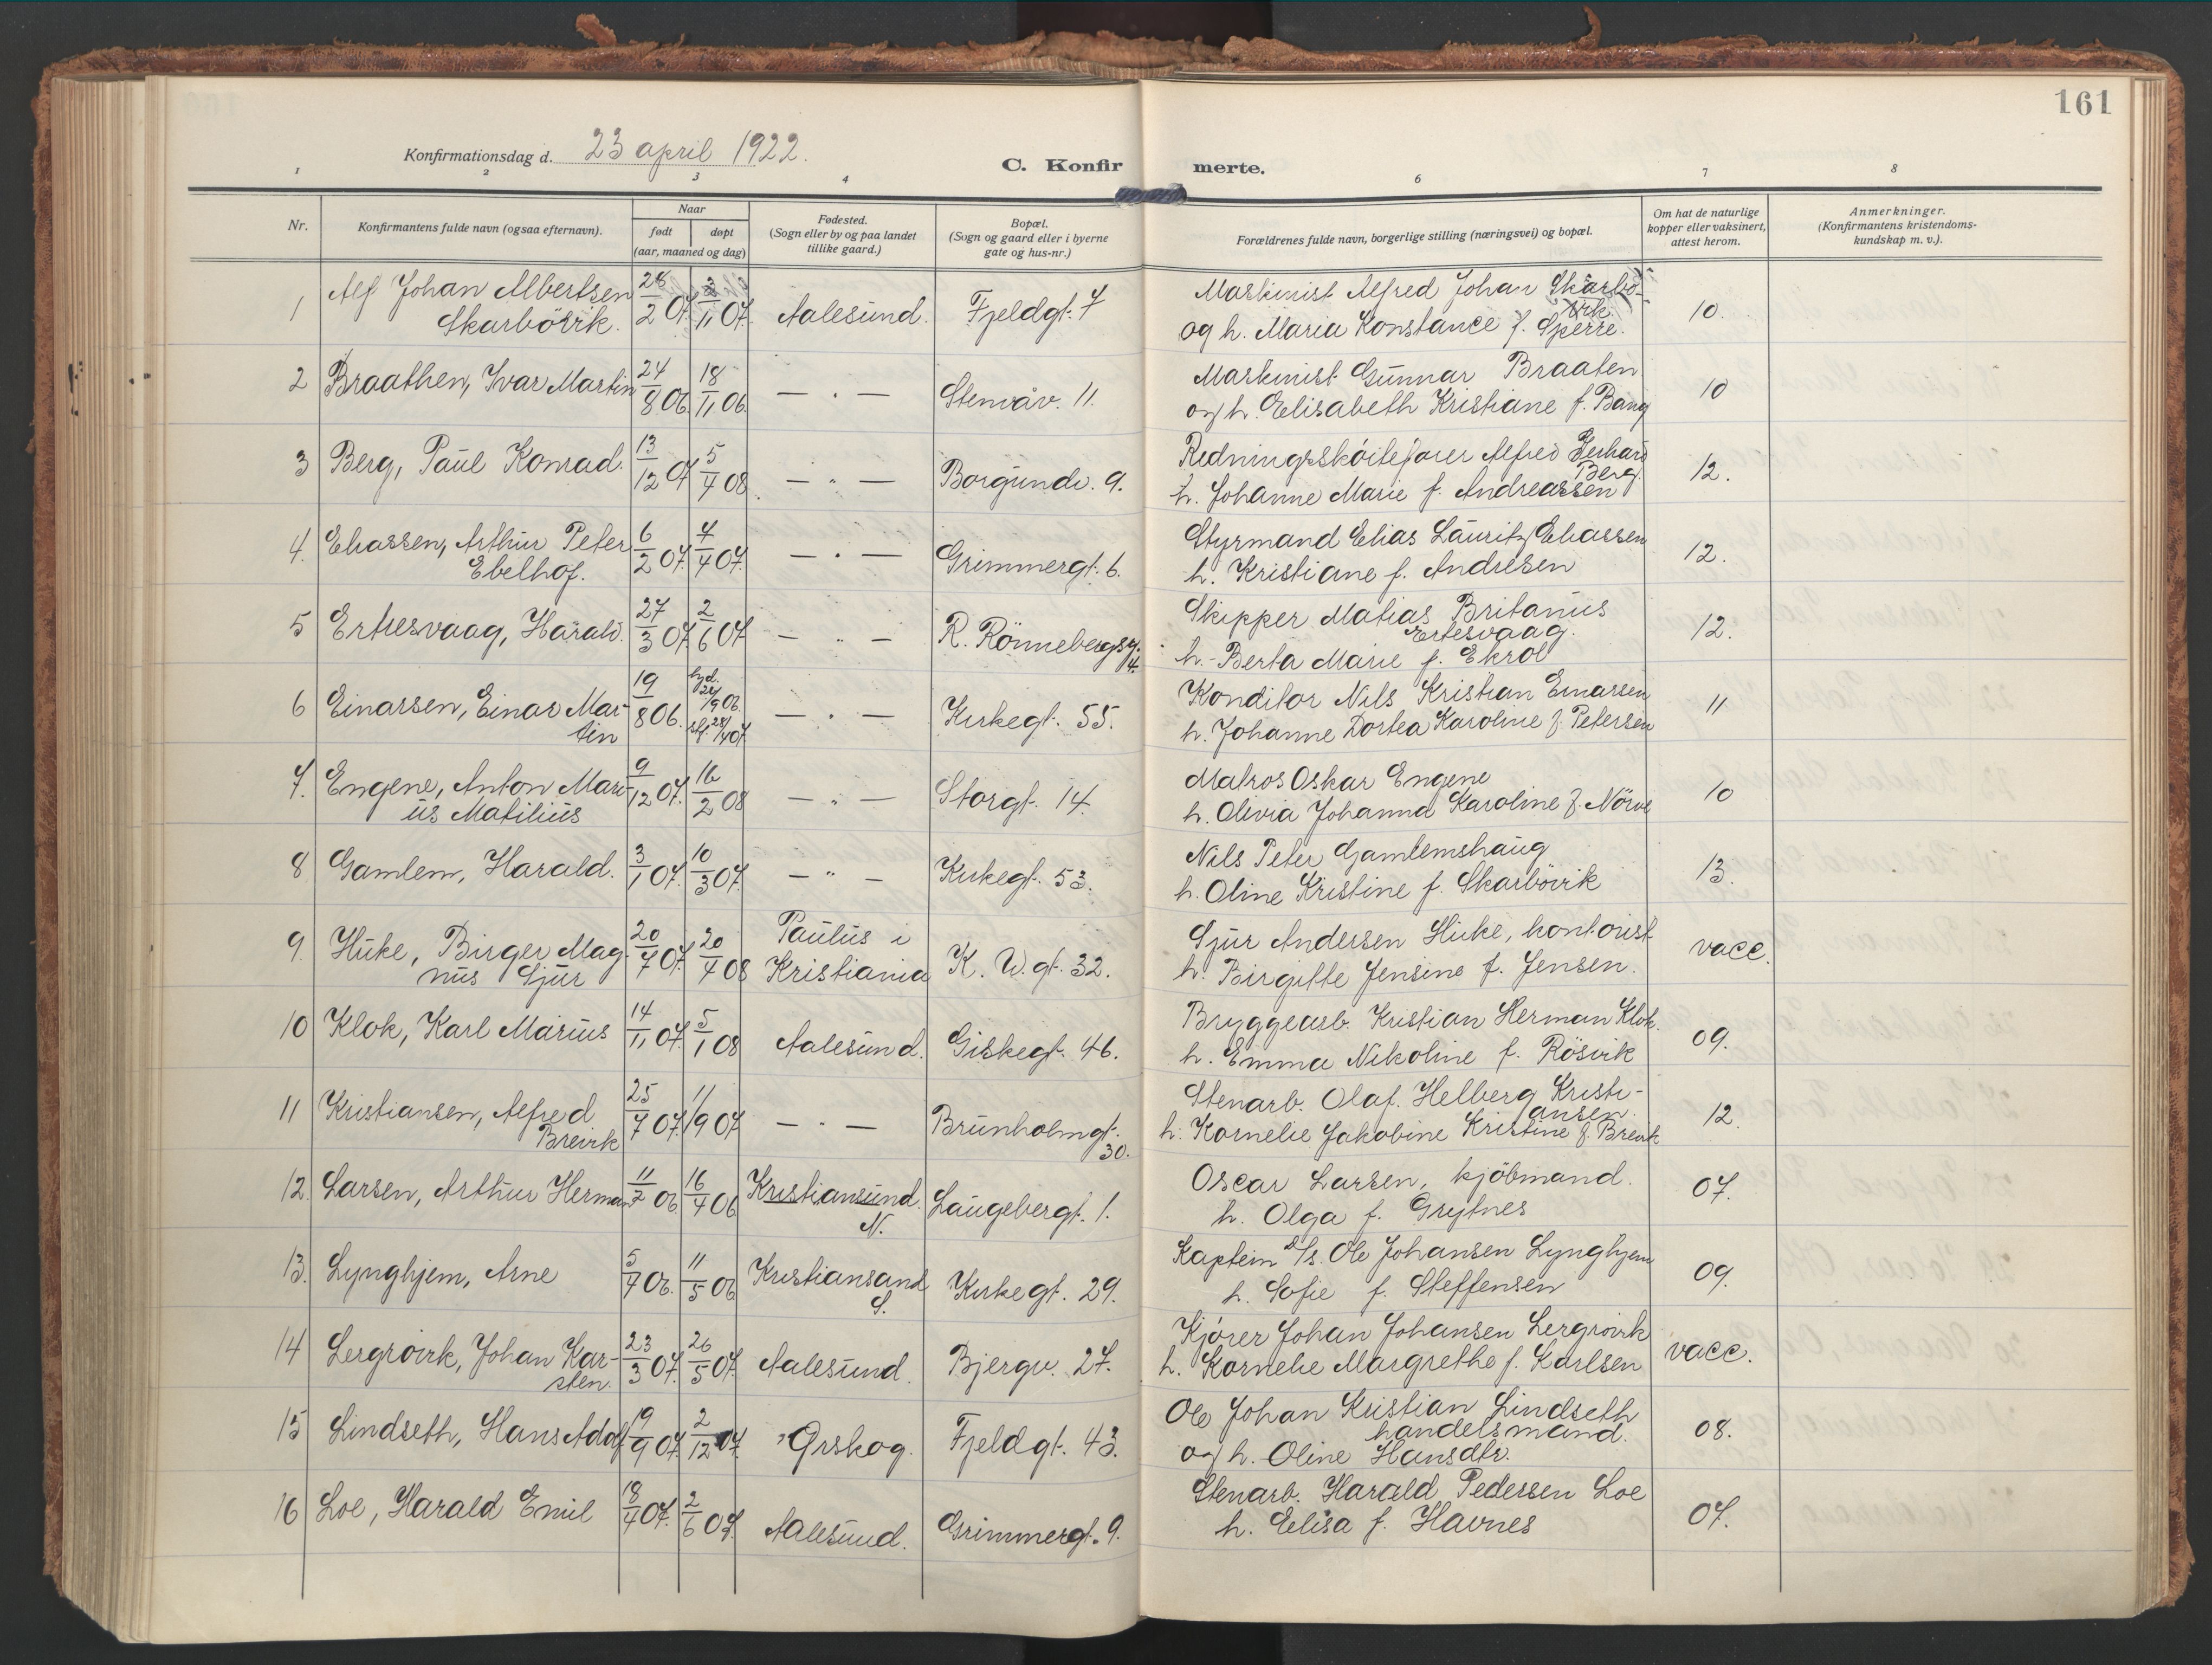 161
Konfirmationsdag d. 23 april 1922.
C. Konfirmerte.
1 2 3 4 6 7 8
Nr.
Konfirmantens fulde navn (ogsaa efternavn).
Naar
født døpt
(aar, maaned og dag)
Fødested.
(Sogn eller by og paa landet
tillike gaard.)
Bopæl.
(Sogn og gaard eller i byerne
gate og hus-nr.)
Forældrenes fulde navn, borgerlige stilling (næringsvei) og bopæl.
Om hat de naturlige
kopper eller vaksinert,
attest herom.
Anmerkninger.
(Konfirmantens kristendoms-
kundskap m. v.).
1 Alf Johan Albertsen 2/07 /11 07. Aalesund. Fjeldgt. 7 Maskinist Alfred Johan Skarbö- 10.
Skarbövik. vik.
og h. Maria Konstance f. Sperre.
2 Braathen, Ivar Martin 24/8 06. 18/11 06. — " — Stenvåv. 11. Maskinist Gunnar Braaten 10
og h. Elisabeth Kristiane f. Bang
3 Berg, Paul Konrad. 13/12 07 5/4 08. — " — Borgundv. 9. Redningsskóitefører Alfred Gerhard 12.
Berg.
h. Johanne Marie f. Andreassen
4. Eliassen, Arthur Peter 6/2 07. 7/4 07. — " — Grimmergt. 6. Styrmand Elias Lauritz Eliassen 12.
Ebelhof. h. Kristiane f. Andresen
5 Ertresvaag, Harald. 27/3 07. 2/6 07 — " — R. Rönnebergsg. Skipper Matias Britanus 12.
4. Ertesvaag.
h. Berta Marie f. Ekrol
6 Einarssen, Einar Mar- 19/8 06. hjd. 24/9 06. — " — Kirkegt. 55. Konditor Nils Kristian Einarssen 11
tin st. 28/4 07. h. Johanne Dortea Karoline f. Petersen
7. Engene, Anton Mari- 9/12 07. 16/2 08 — " — Storgt. 14. Matros Oskar Engene 10
us Matilius h. Olivia Johanna Karoline f. Nörve
8 Gamlem, Harald. 3/1 07. 10/3 07. — " — Kirkegt. 53. Nils Peter Gamlemshaug 13.
h. Oline Kristine f. Skarbövik
9. Huke, Birger Mag- 20/7 07. 20/4 08 Paulus i K. W. gt. 32. Sjur Andersen Huke, kontorist vacc.
nus Sjur Kristiania h. Birgitte Jensine f. Jensen.
10 Klok, Karl Marius 14/11 07. 5/1 08 Aalesund. Giskegt. 46. Bryggearb. Kristian Herman Klok. 09.
h. Emma Nikoline f. Rösvik
11 Kristiansen, Alfred 25/7 07. 1/9 07 — " — Brunholmgt. Stenarb. Olaf Helberg Kristi- 12.
Breivik 30. ansen.
h. Kornelie Jakobine Kristine f. Breivik
12. Larsen, Arthur Herman 11/2 06. 16/4 06 Kristiansund. Laugebergt. 1. Oscar Larsen, kjöbmand. 07.
N. h. Olga f. Grytnes
13. Lynghjem, Arne 5/4 06. 11/5 06 Kristiansand Kirkegt. 29. Kaptein D/s. Ole Johansen Lynghjem 09.
S. h. Sofie f. Steffensen
14 Lergrovik, Johan Kar- 23/3 07. 26/5 07. Aalesund. Bjergv. 27. Kjører Johan Johansen Lergrovik vacc.
sten. h. Kornelie Margrethe f. Karlsen
15 Lindseth, Hans Adolf 19/9 07. 2/12 07. Ørskog. Fjeldgt. 43. Ole Johan Kristian Lindseth 08.
handelsmand.
og h. Oline Hansdtr.
16 Loe, Harald Emil 18/4 07. 2/6 07. Aalesund. Grimmergt. 9. Stenarb. Harald Pedersen Loe 07.
h. Elisa f. Havnes